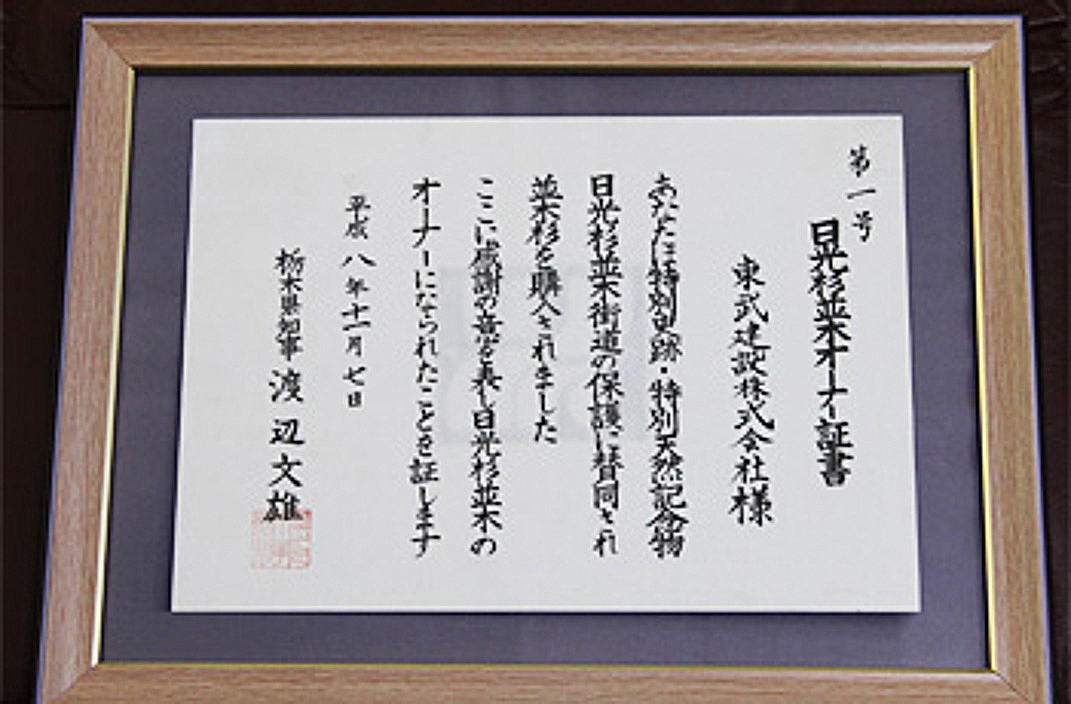 第一号
日光杉並木オーナー証書
東武建設株式会社様
あなたは特別史跡・特別天然記念物
日光杉並木街道の保護に賛同され
並木杉を購入されました
ここに感謝の意を表し日光杉並木の
オーナーになられたことを証します
平成八年十一月七日
栃木県知事 渡辺文雄